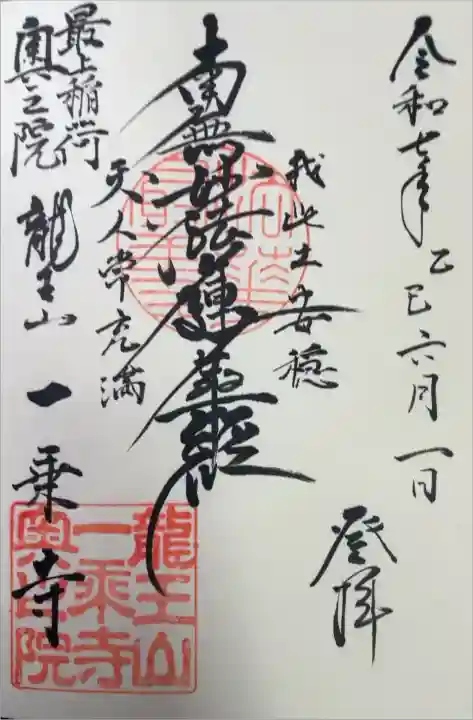 令和七年乙巳六月一日
登拝
我此土安穏
南無妙法蓮華経
天人常充満
最上稲荷
奥之院 龍王山 一乗寺
龍王山
一乗寺
奥之院